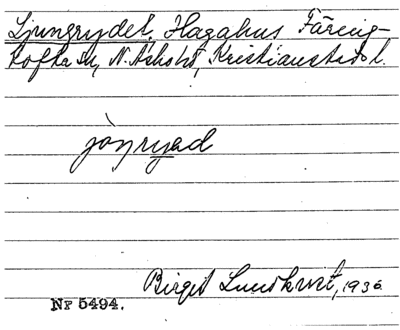 Ljungrydet, Hagahus Färing-
tofta sn, N. Åsbo hd, Kristianstads l.
jòŋryəd
Birgit Lundkvist, 1936.
Nr 5494.